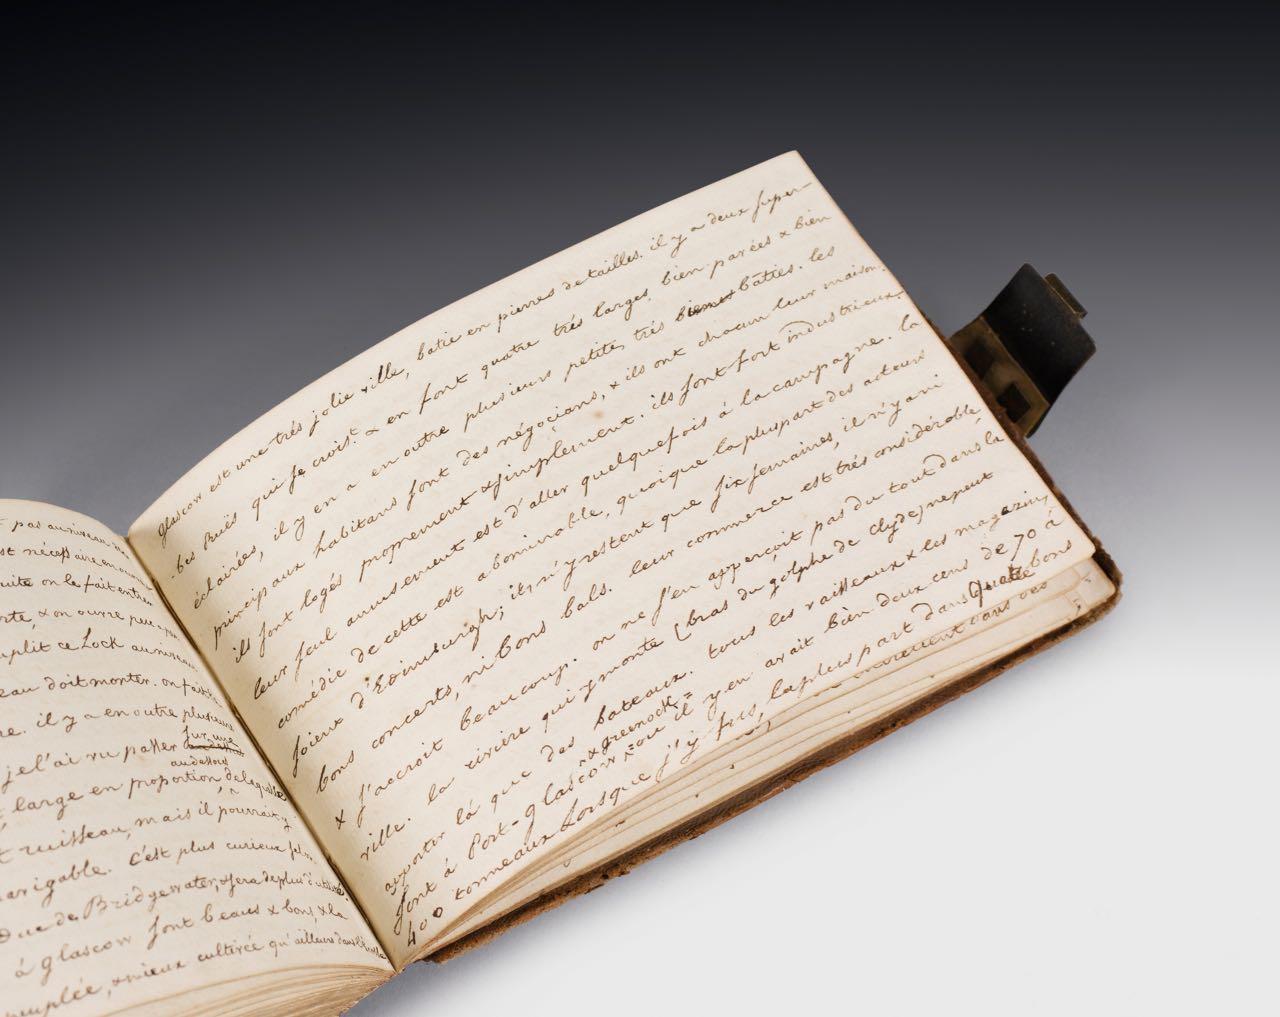 t pas au niveau
est nécessaire en
suite on le fait entrer
orte, & on ouvre peu a peu
mplit ce Lock au niveau
eau doit monter. on fait
ne. il y a en outre plusieurs
je l'ai vu passer sur une
au dessous
large en proportion de laquelle
t ruisseau, mais il pourrait y
navigable. C'est plus curieux
Duc de Bridgewater, & sera de plus d'utilité
à glascow sont beaux & bons, & la
peuplée, & mieux cultivée qu'ailleurs dans
glascow est une très jolie ville, batie en pierres de tailles. il y a deux super-
-bes Rues qui se croist. & en font quatre très larges, bien pavées & bien
éclairées, il y en a en outre plusieurs petites très bien baties. les
principaux habitans sont des négocians, & ils ont chacun leur maison.
ils sont logés proprement & simplement. ils sont fort industrieux.
leur seul amusement est d'aller quelquefois à la campagne. la
comédie de cette est abominable, quoique la pluspart des acteurs
soient d'Edimburgh; ils n'y restent que six semaines, il n'y a ni
bons concerts, ni bons bals. leur commerce est très considérable,
& s'accroit beaucoup. on ne s'en apperçoit pas du tout dans la
ville. la rivière qui y monte (bras du golphe de Clyde) ne peut
apporter là que des bateaux. tous les vaisseaux & les magazins,
sont à Port-glascow & greenock où il y en avait bien deux cens de 70 à
400 tonneaux lorsque j'y fus, la plus part dans quatre bons
dans ces